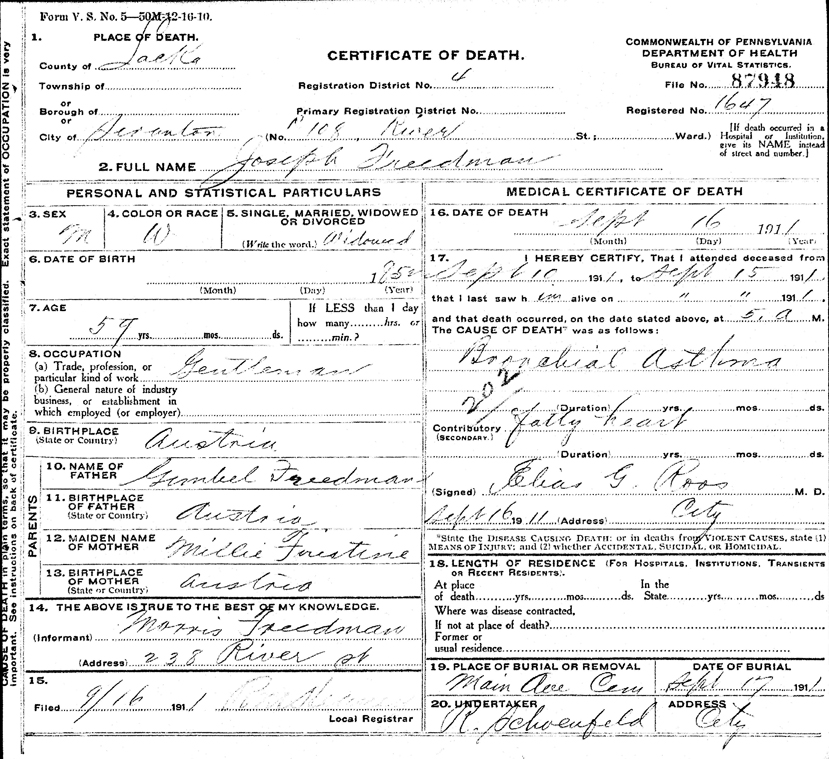 Form V. S. No. 5—50M-12-16-10.
1. PLACE OF DEATH.
County of Lacka
Township of
or
Borough of
or
City of Scranton
CERTIFICATE OF DEATH.
Registration District No. 4
Primary Registration District No.
(No. 108, River St.; Ward.)
COMMONWEALTH OF PENNSYLVANIA
DEPARTMENT OF HEALTH
BUREAU OF VITAL STATISTICS.
File No. 87948
Registered No. 1647
[If death occurred in a
Hospital or Institution,
give its NAME instead
of street and number.]
2. FULL NAME Joseph Freedman
PERSONAL AND STATISTICAL PARTICULARS
3. SEX
M
4. COLOR OR RACE
W
5. SINGLE, MARRIED, WIDOWED
OR DIVORCED
(Write the word.) Widowed
6. DATE OF BIRTH
1852
(Month) (Day) (Year)
7. AGE
59 yrs. mos. ds.
If LESS than 1 day
how many........hrs. or
.........min.?
8. OCCUPATION
(a) Trade, profession, or
particular kind of work Gentleman
(b) General nature of industry
business, or establishment in
which employed (or employer)
9. BIRTHPLACE
(State or Country) Austria
PARENTS
10. NAME OF
FATHER Gimbel Freedman
11. BIRTHPLACE
OF FATHER
(State or Country) Austria
12. MAIDEN NAME
OF MOTHER Millie
13. BIRTHPLACE
OF MOTHER
(State or Country) Austria
14. THE ABOVE IS TRUE TO THE BEST OF MY KNOWLEDGE.
(Informant) Morris Freedman
(Address) 238 River st
15.
Filed 9/16 1911
Local Registrar
MEDICAL CERTIFICATE OF DEATH
16. DATE OF DEATH
Sept 16 1911
(Month) (Day) (Year)
17. I HEREBY CERTIFY, That I attended deceased from
Sept 10 1911, to Sept 15 1911,
that I last saw him alive on " " 1911,
and that death occurred, on the date stated above, at 5. a M.
The CAUSE OF DEATH* was as follows:
Bronchial Asthma
202
(Duration) yrs. mos. ds.
Contributory Fatty heart
(SECONDARY.)
(Duration) yrs. mos. ds.
(Signed) Elias G. Roos M. D.
Sept 16 1911 (Address) City
*State the DISEASE CAUSING DEATH; or in deaths from VIOLENT CAUSES, state (1)
MEANS OF INJURY; and (2) whether ACCIDENTAL, SUICIDAL, OR HOMICIDAL.
18. LENGTH OF RESIDENCE (FOR HOSPITALS, INSTITUTIONS, TRANSIENTS
OR RECENT RESIDENTS).
At place In the
of death........yrs........mos........ds. State........yrs........mos........ds.
Where was disease contracted,
If not at place of death?
Former or
usual residence
19. PLACE OF BURIAL OR REMOVAL
Main Ave Cem
DATE OF BURIAL
Sept 17 1911
20. UNDERTAKER
R. Schoenfeld
ADDRESS
City
CAUSE OF DEATH in plain terms, so that it may be properly classified. Exact statement of OCCUPATION is very
important. See instructions on back of certificate.